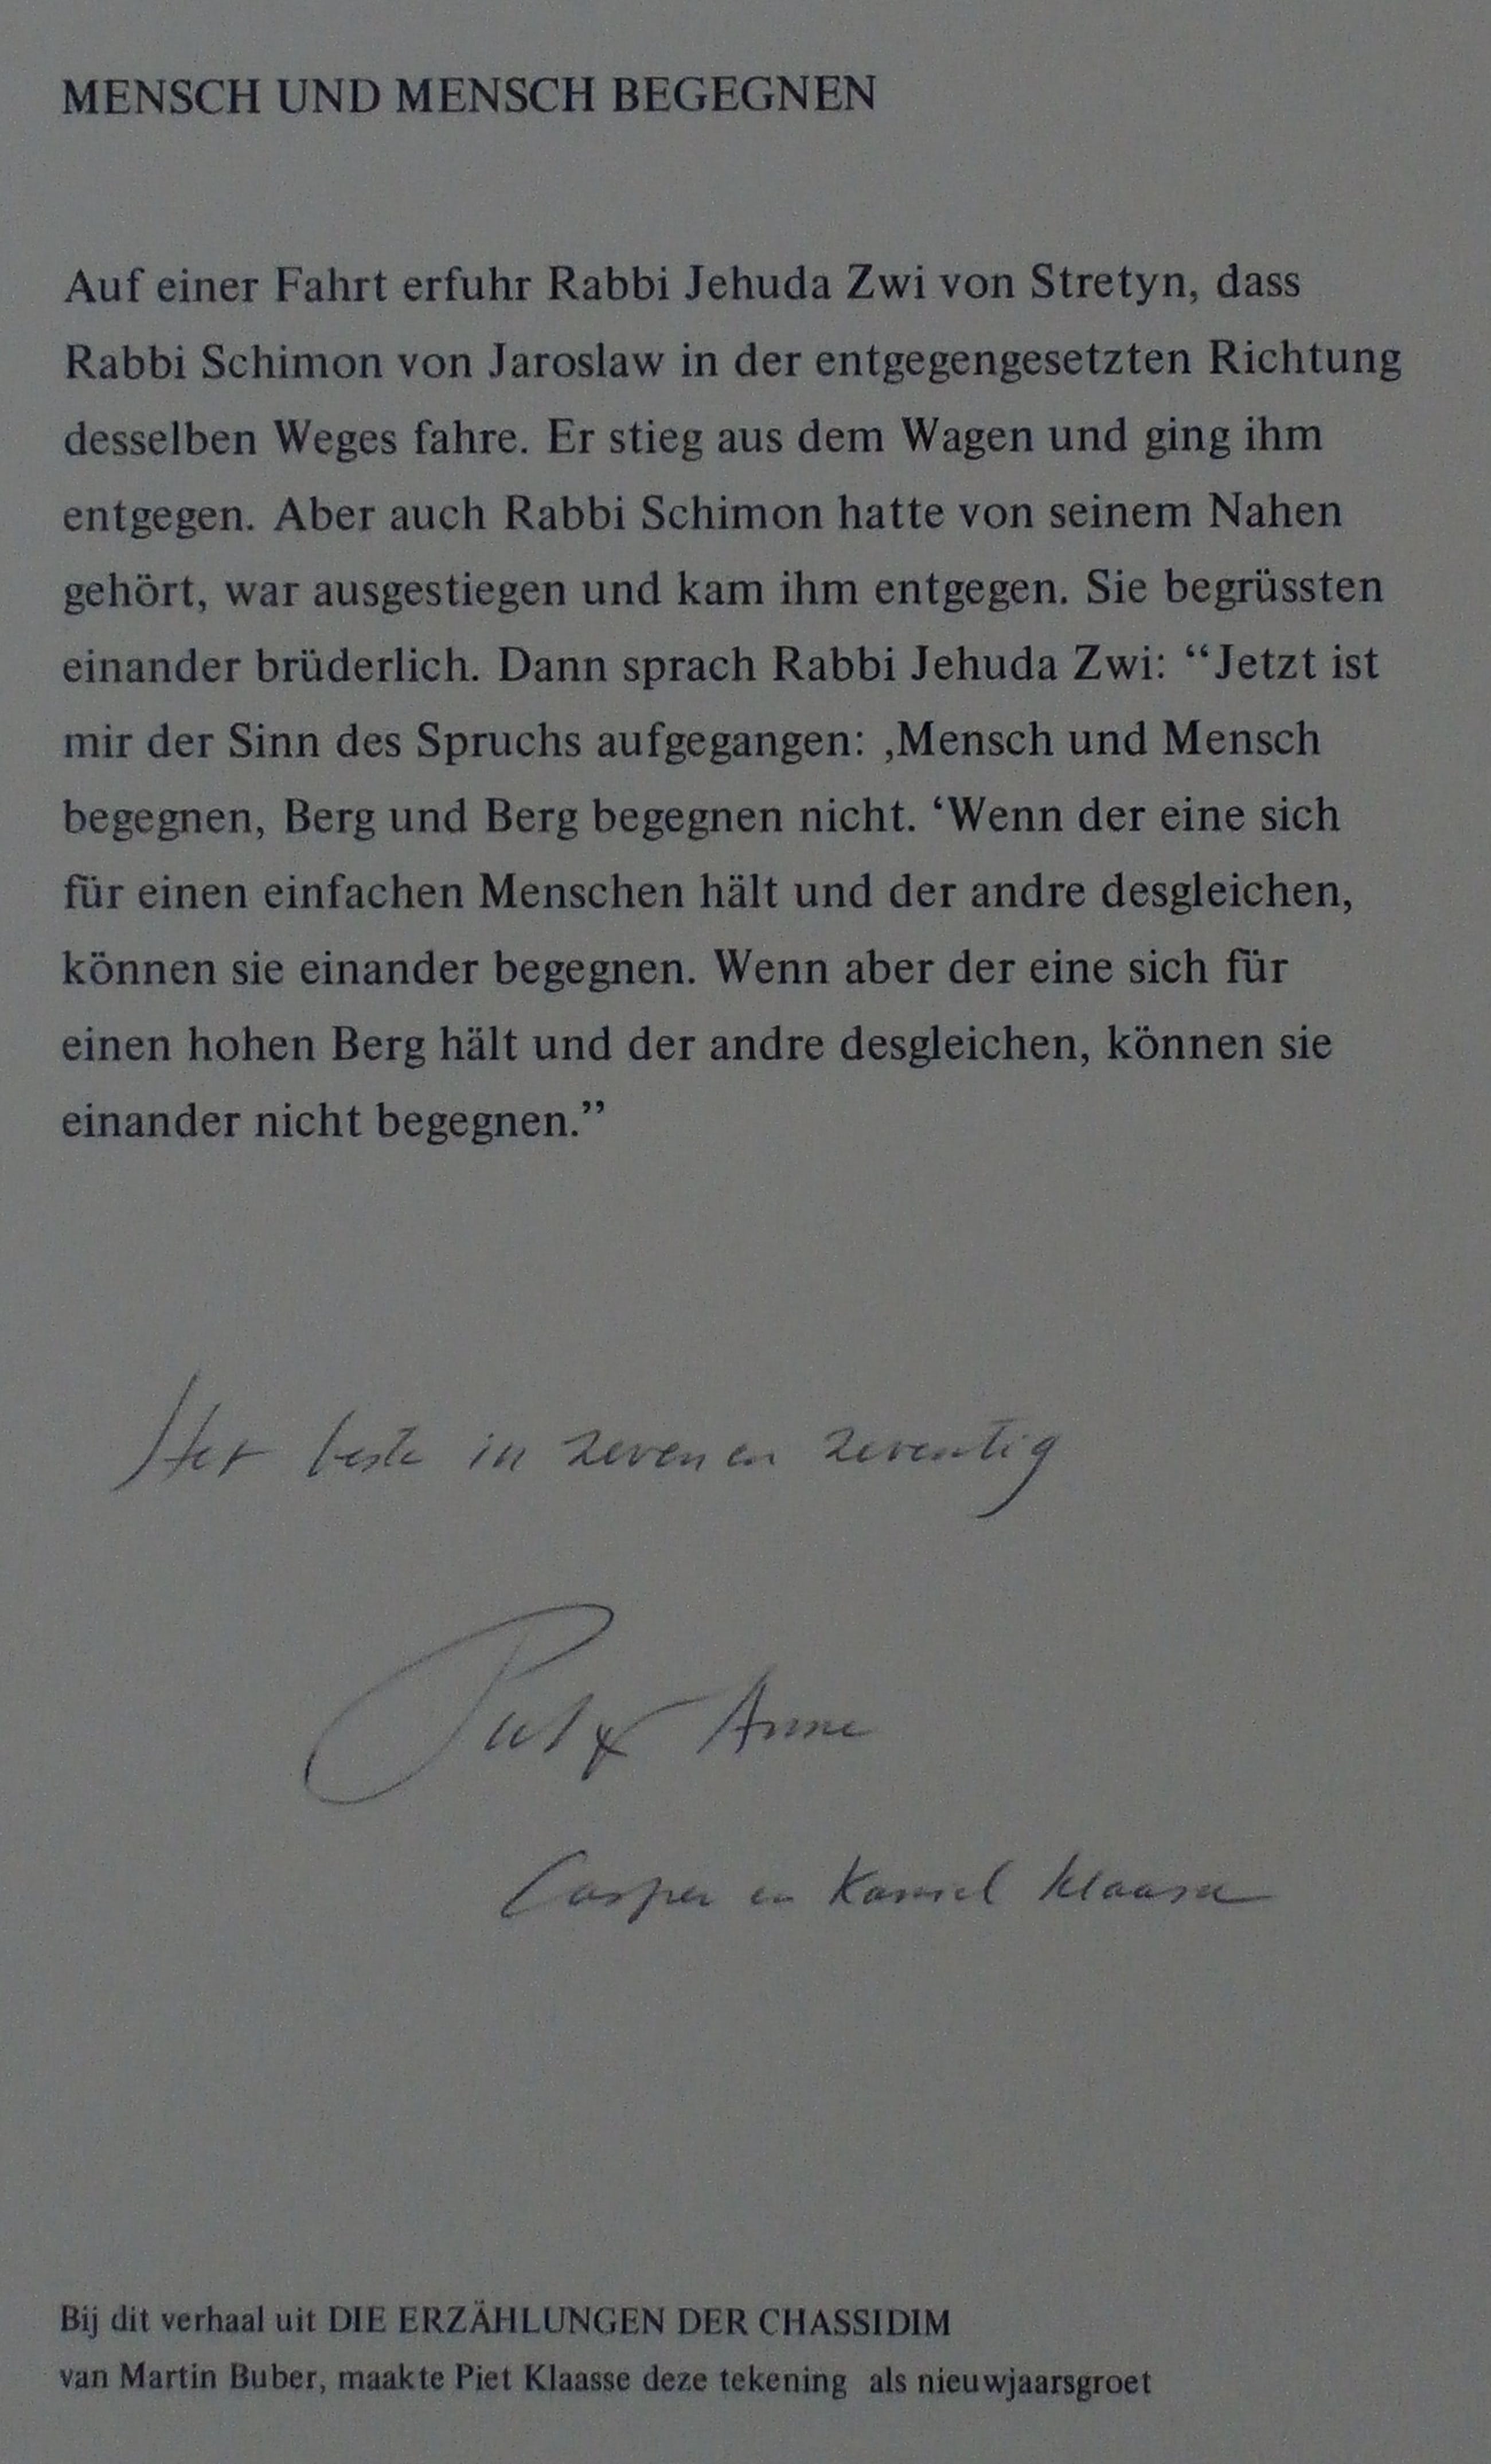 MENSCH UND MENSCH BEGEGNEN
Auf einer Fahrt erfuhr Rabbi Jehuda Zwi von Stretyn, dass
Rabbi Schimon von Jaroslaw in der entgegengesetzten Richtung
desselben Weges fahre. Er stieg aus dem Wagen und ging ihm
entgegen. Aber auch Rabbi Schimon hatte von seinem Nahen
gehört, war ausgestiegen und kam ihm entgegen. Sie begrüssten
einander brüderlich. Dann sprach Rabbi Jehuda Zwi: “Jetzt ist
mir der Sinn des Spruchs aufgegangen: ‚Mensch und Mensch
begegnen, Berg und Berg begegnen nicht. ‘Wenn der eine sich
für einen einfachen Menschen hält und der andre desgleichen,
können sie einander begegnen. Wenn aber der eine sich für
einen hohen Berg hält und der andre desgleichen, können sie
einander nicht begegnen.”
Het beste in zeven en zeventig
Piet & Anne
Casper en Klaasse
Bij dit verhaal uit DIE ERZÄHLUNGEN DER CHASSIDIM
van Martin Buber, maakte Piet Klaasse deze tekening als nieuwjaarsgroet